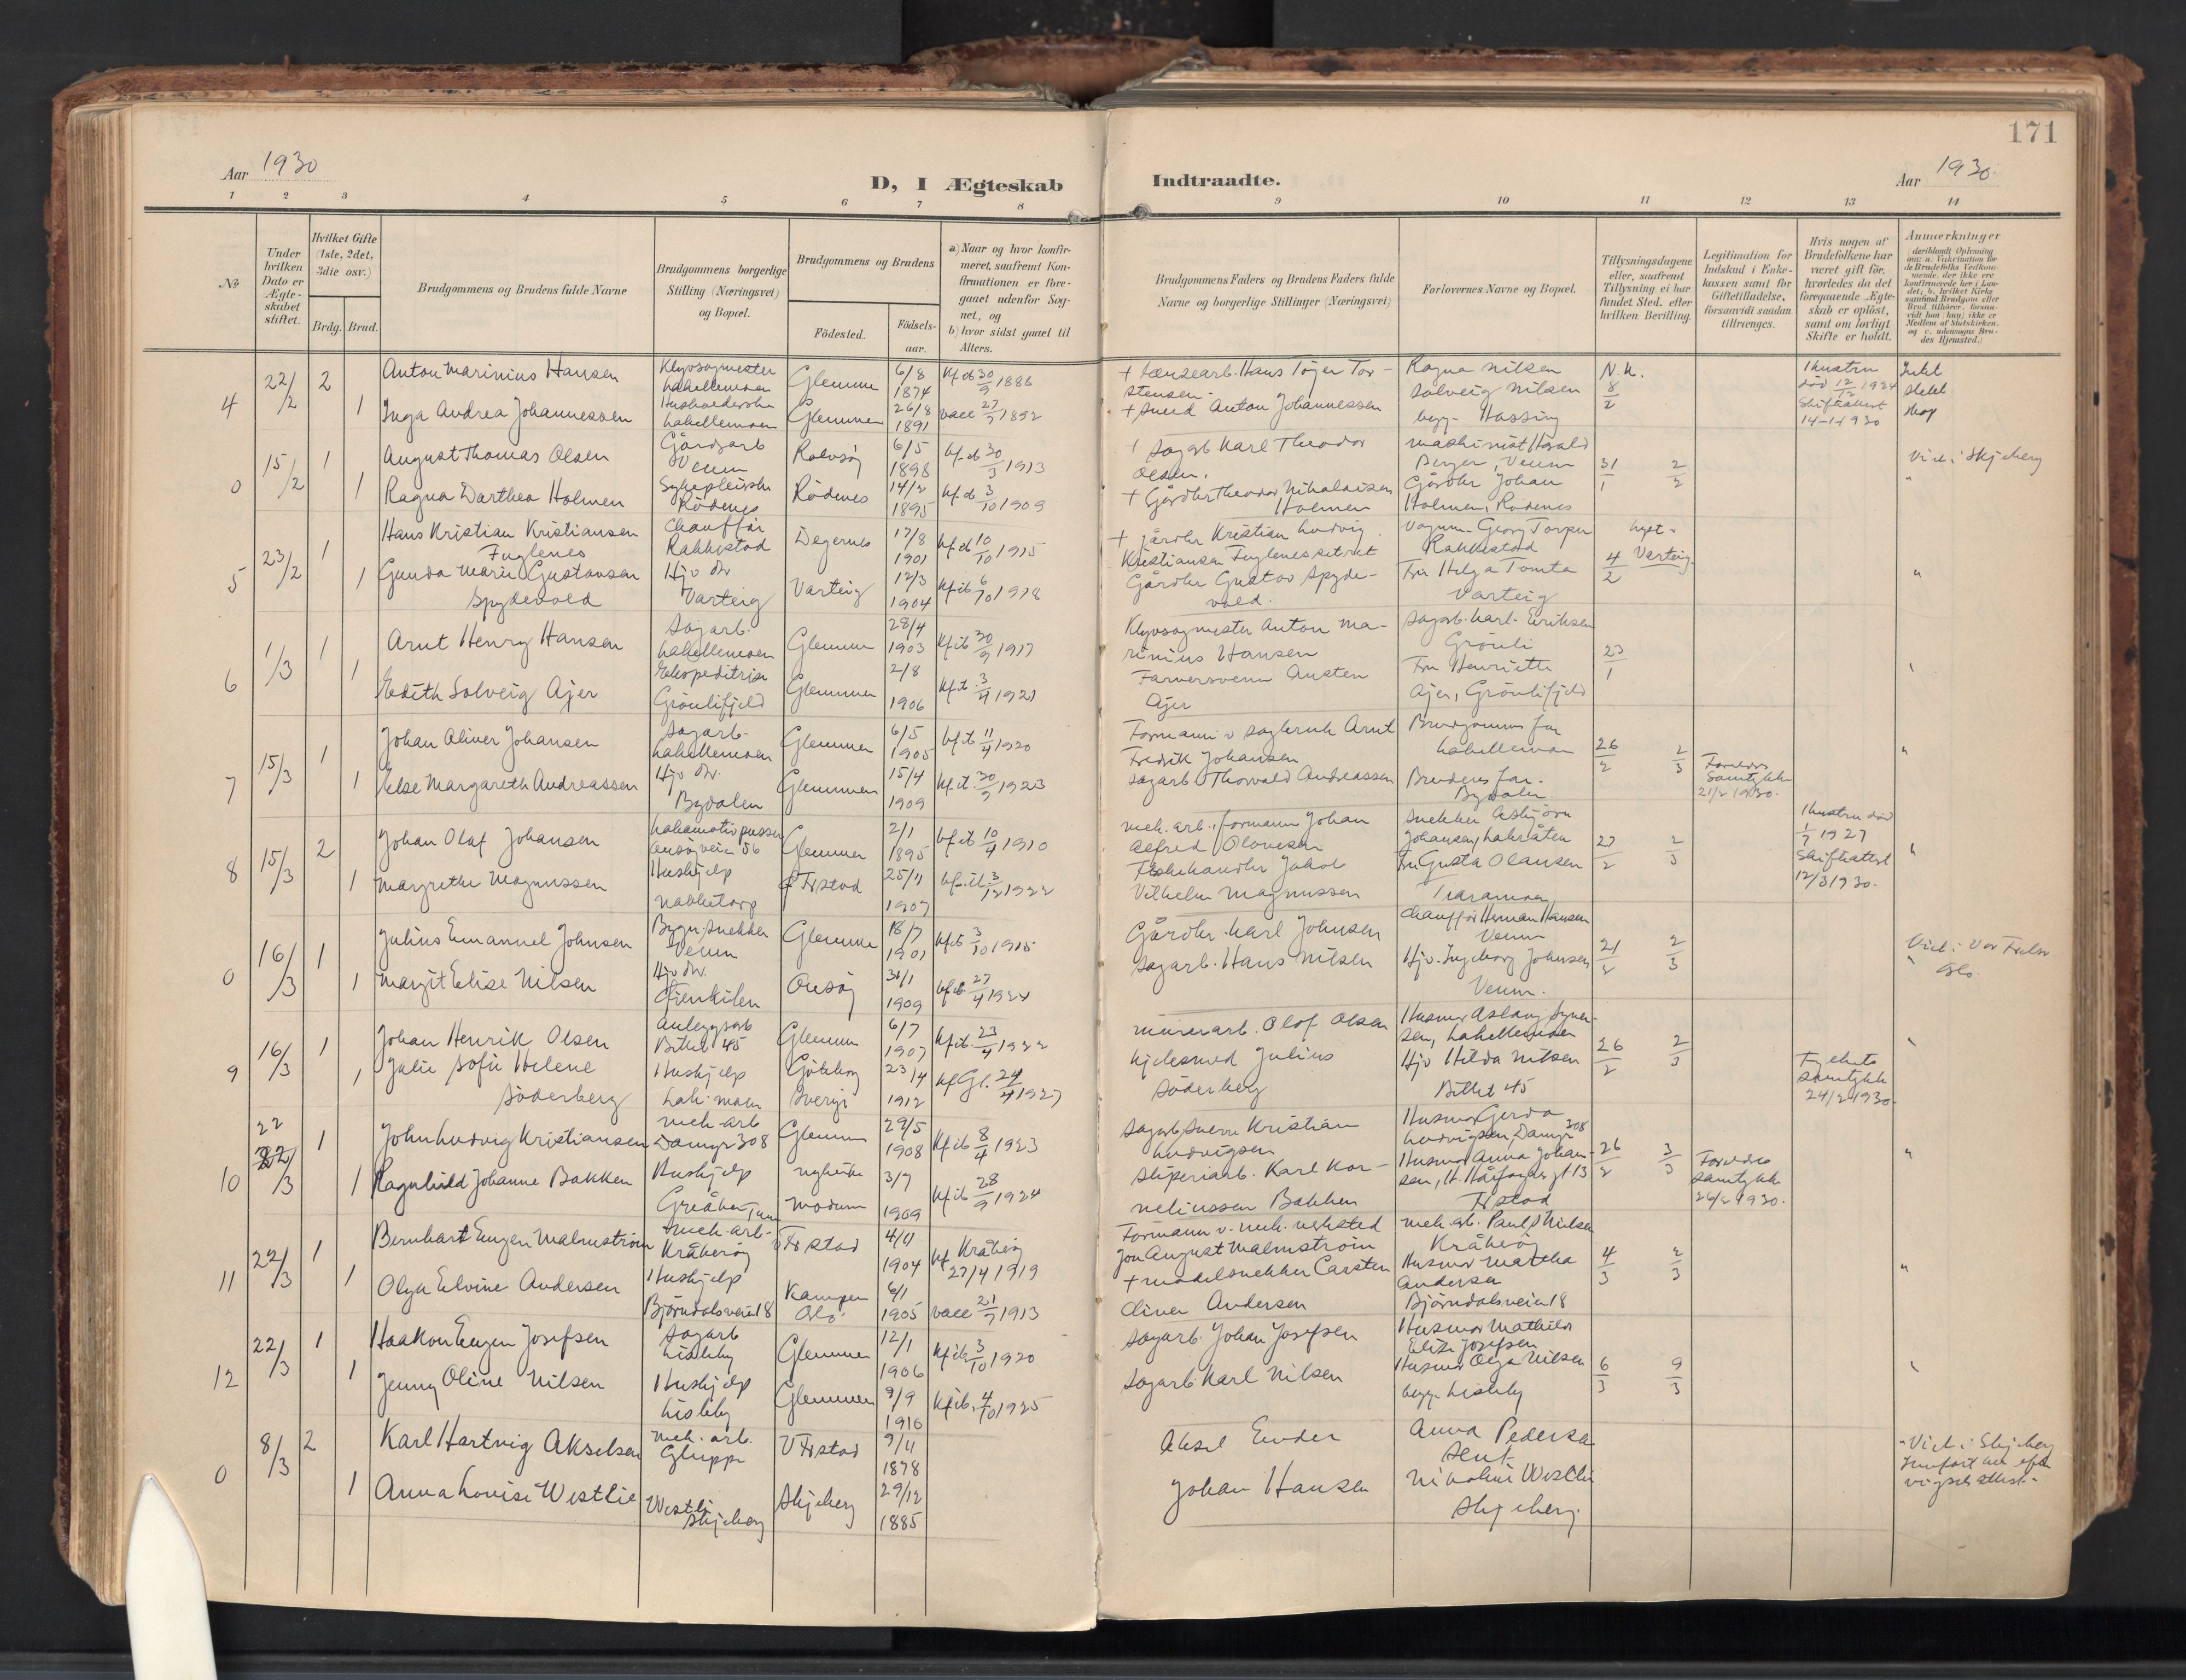 171
Aar 1930
D, I Ægteskab Indtraadte.
Aar 1930
1 2 3 4 5 6 7 8 9 10 11 12 13 14
No
Under hvilken Dato er Ægteskabet stiftet.
Hvilket Gifte (1ste, 2det, 3die osv.)
Brdg. Brud.
Brudgommens og Brudens fulde Navne
Brudgommens borgerlige Stilling (Næringsvei) og Bopæl.
Brudgommens og Brudens
Födested. Födselsaar.
a) Naar og hvor konfirmeret, saafremt Konfirmationen er foregaaet udenfor Sognet, og
b) hvor sidst gaaet til Alters.
Brudgommens Faders og Brudens Faders fulde Navne og borgerlige Stillinger (Næringsvei)
Forlovernes Navne og Bopæl.
Tillysningsdagene eller, saafremt Tillysning ei har fundet Sted, efter hvilken Bevilling.
Legitimation for Indskud i Enkekassen samt for Giftetilladelse, forsaavidt saadan tiltrænges.
Hvis nogen af Brudefolkene har været gift för, hvorledes da det foregaaende Ægteskab er oplöst, samt om lovligt Skifte er holdt.
Anmærkninger
4 22/2 2 Anton Marinius Hansen Klyvsagmester Lahellemoen Glemmen 6/8 1874 kf. ib 30/9 1888
+ Hans Töger Torstensen Ragna Nilsen N.K. 8/2 Hustru död 12/2 1924 Skifteattest 14-1-1930
1 Inga Andrea Johannessen Lahellemoen Glemmen 26/8 1891 vacc 27/7 1892
+ Smed Anton Johannessen Solveig Nilsen begge Hassing
0 15/2 1 August Thomas Olsen Gårdsarb Venm Rolvsöy 6/5 1898 kf. ib 30/3 1913
+ Sagarb Karl Theodor Olsen. Maskinist Harald Berger, Venm 31/1 2/2 Viet i Skjeberg
1 Ragna Darthea Holmen Sykepleierske Rödenes Rödenes 14/2 1895 kf. ib 3/10 1909
+ Gårdbr Theodor Nikolaisen Holmen Gårdbr Johan Holmen, Rödenes "
5 23/2 1 Hans Kristian Kristiansen Fuglenes Chauffør Rakkestad Degernes 17/8 1901 kf. ib 10/10 1915
+ gårdbr Kristian Ludvig Kristiansen Georg Torper Rakkestad 4/2 lyst. Varteig
1 Gunda Marie Gustavsen Spydevold Hjv dtr Varteig Varteig 12/3 1904 kf ib 6/10 1918
Gårdbr Gustav Spydevold. Fru Helga Tomta Varteig "
6 1/3 1 Arnt Henry Hansen Sagarb. Lahellemoen Glemmen 28/4 1903 kf ib 30/9 1917
Klyvsagmester Anton Marinius Hansen Sagarb. Karl Eriksen Grönli 23/1
1 Edith Solveig Ajer Ekspeditrise Grönlifjeld Glemmen 2/8 1906 kf. ib. 3/4 1921
Farversvenn Austen Ajer Fru Henriette Ajer, Grönlifjeld "
7 15/3 1 Johan Oliver Johansen Sagarb. Lahellemoen Glemmen 6/5 1905 kf. ib 11/4 1920
Formann v sagbruk Arnt Fredrik Johansen Brudgommens far Lahellemoen 26/2 2/3 Foreldres Samtykke 21/2 1930.
1 Else Margareth Andreassen Hjv dtr. Bydalen Glemmen 15/4 1909 kf. ib. 30/9 1923
Sagarb Thorvald Andreassen Brudens far. Bydalen "
8 15/3 2 Johan Olaf Johansen Lokomotivpusser Onsöyveien 56 Glemmen 2/1 1895 kf. ib 10/4 1910
Mek. arb. formann Johan Alfred Snekker Asbjörn Johansen, Labråten 27/2 2/3 Hustru död 1/7 1927 Skifteattest 12/3 1930.
1 Margrethe Magnussen Hushjelp Nabbetorp Frstad 25/11 1907 kf. ib 3/12 1922
Fiskehandler Jakob Vilhelm Magnussen Fru Gusta Olausen "
0 16/3 1 Julius Emanuel Johnsen Bygn. snekker Venm Glemmen 18/7 1901 kf ib 3/10 1915
Gårdbr. Karl Johnsen Chauffør Herman Hansen Venm 21/2 2/3 Viet i Vor Frelser Oslo.
1 Margit Elise Nilsen Hjv. dtr. Onsöy 31/1 1909 kf ib. 27/4 1924
Sagarb. Hans Nilsen Hjv. Ingeborg Johnsen Venm. "
9 16/3 1 Johan Henrik Olsen Anleggsarb Bittet 45 Glemmen 6/7 1907 kf ib. 23/4 1922
Murerarb. Olaf Olsen Husmor Aslaug Syversen, Lahellemoen 26/2 2/3
1 Julie Sofie Helene Söderberg Hushjelp Lah. moen Göteborg Sverige 23/4 1912 kf Gl. 24/4 1927
Kjelesmed Julius Söderberg Hjv Hilda Nilsen Bittet 45 Fylkets samtykke 24/2 1930. "
10 22 22/3 1 John Ludvig Kristiansen Mek. arb Damyr 308 Glemmen 29/5 1908 kf ib 8/4 1923
Sagarb Sverre Kristian Ludvigsen Husmor Gerda Ludvigsen, Damyr 308 26/2 3/3 Foreldres samtykke 26/2 1930.
1 Ragnhild Johanne Bakken Hushjelp Greåker Modum 3/7 1909 kf ib 28/9 1924
Sliperiarb. Karl Korneliussen Bakken Husmor Anna Johansen, H. Hårfagres gt 13 Frstad "
11 22/3 1 Bernhart Eugen Malmström Mek arb. Kråkeröy Frstad 4/11 1904 kf. Kråkeröy 27/4 1919
Formann v. mek. verksted Jon August Malmström Mek. arb. Paul Nilsen Kråkeröy 4/3 2/3
1 Olga Elvine Andersen Hushjelp Björndalsveien 18 Kampen Oslo. 6/1 1905 vacc 21/7 1913
+ Modelsnekker Carsten Oliver Andersen Husmor Martha Andersen Björndalsveien 18 "
12 22/3 1 Haakon Eugen Josefsen Sagarb Lisleby Glemmen 12/1 1906 kf ib 3/10 1920
Sagarb. Johan Josefsen Husmor Mathilde Elise Josefsen 6/3 9/3
1 Jenny Oline Nilsen Hushjelp Lisleby Glemmen 9/9 1910 kf ib. 4/10 1925
Sagarb Karl Nilsen Husmor Olga Nilsen begge Lisleby "
0 8/3 2 Karl Hartvig Akselsen Mek. arb. Gluppe V Frstad 9/11 1878
Aksel Ender Anna Pedersen Viet i Skjeberg Innfört her efter vigselsattest.
1 Anna Lovise Westlie Westli Skjeberg Skjeberg 29/12 1885
Johan Hansen Nikoline Westlie Skjeberg.